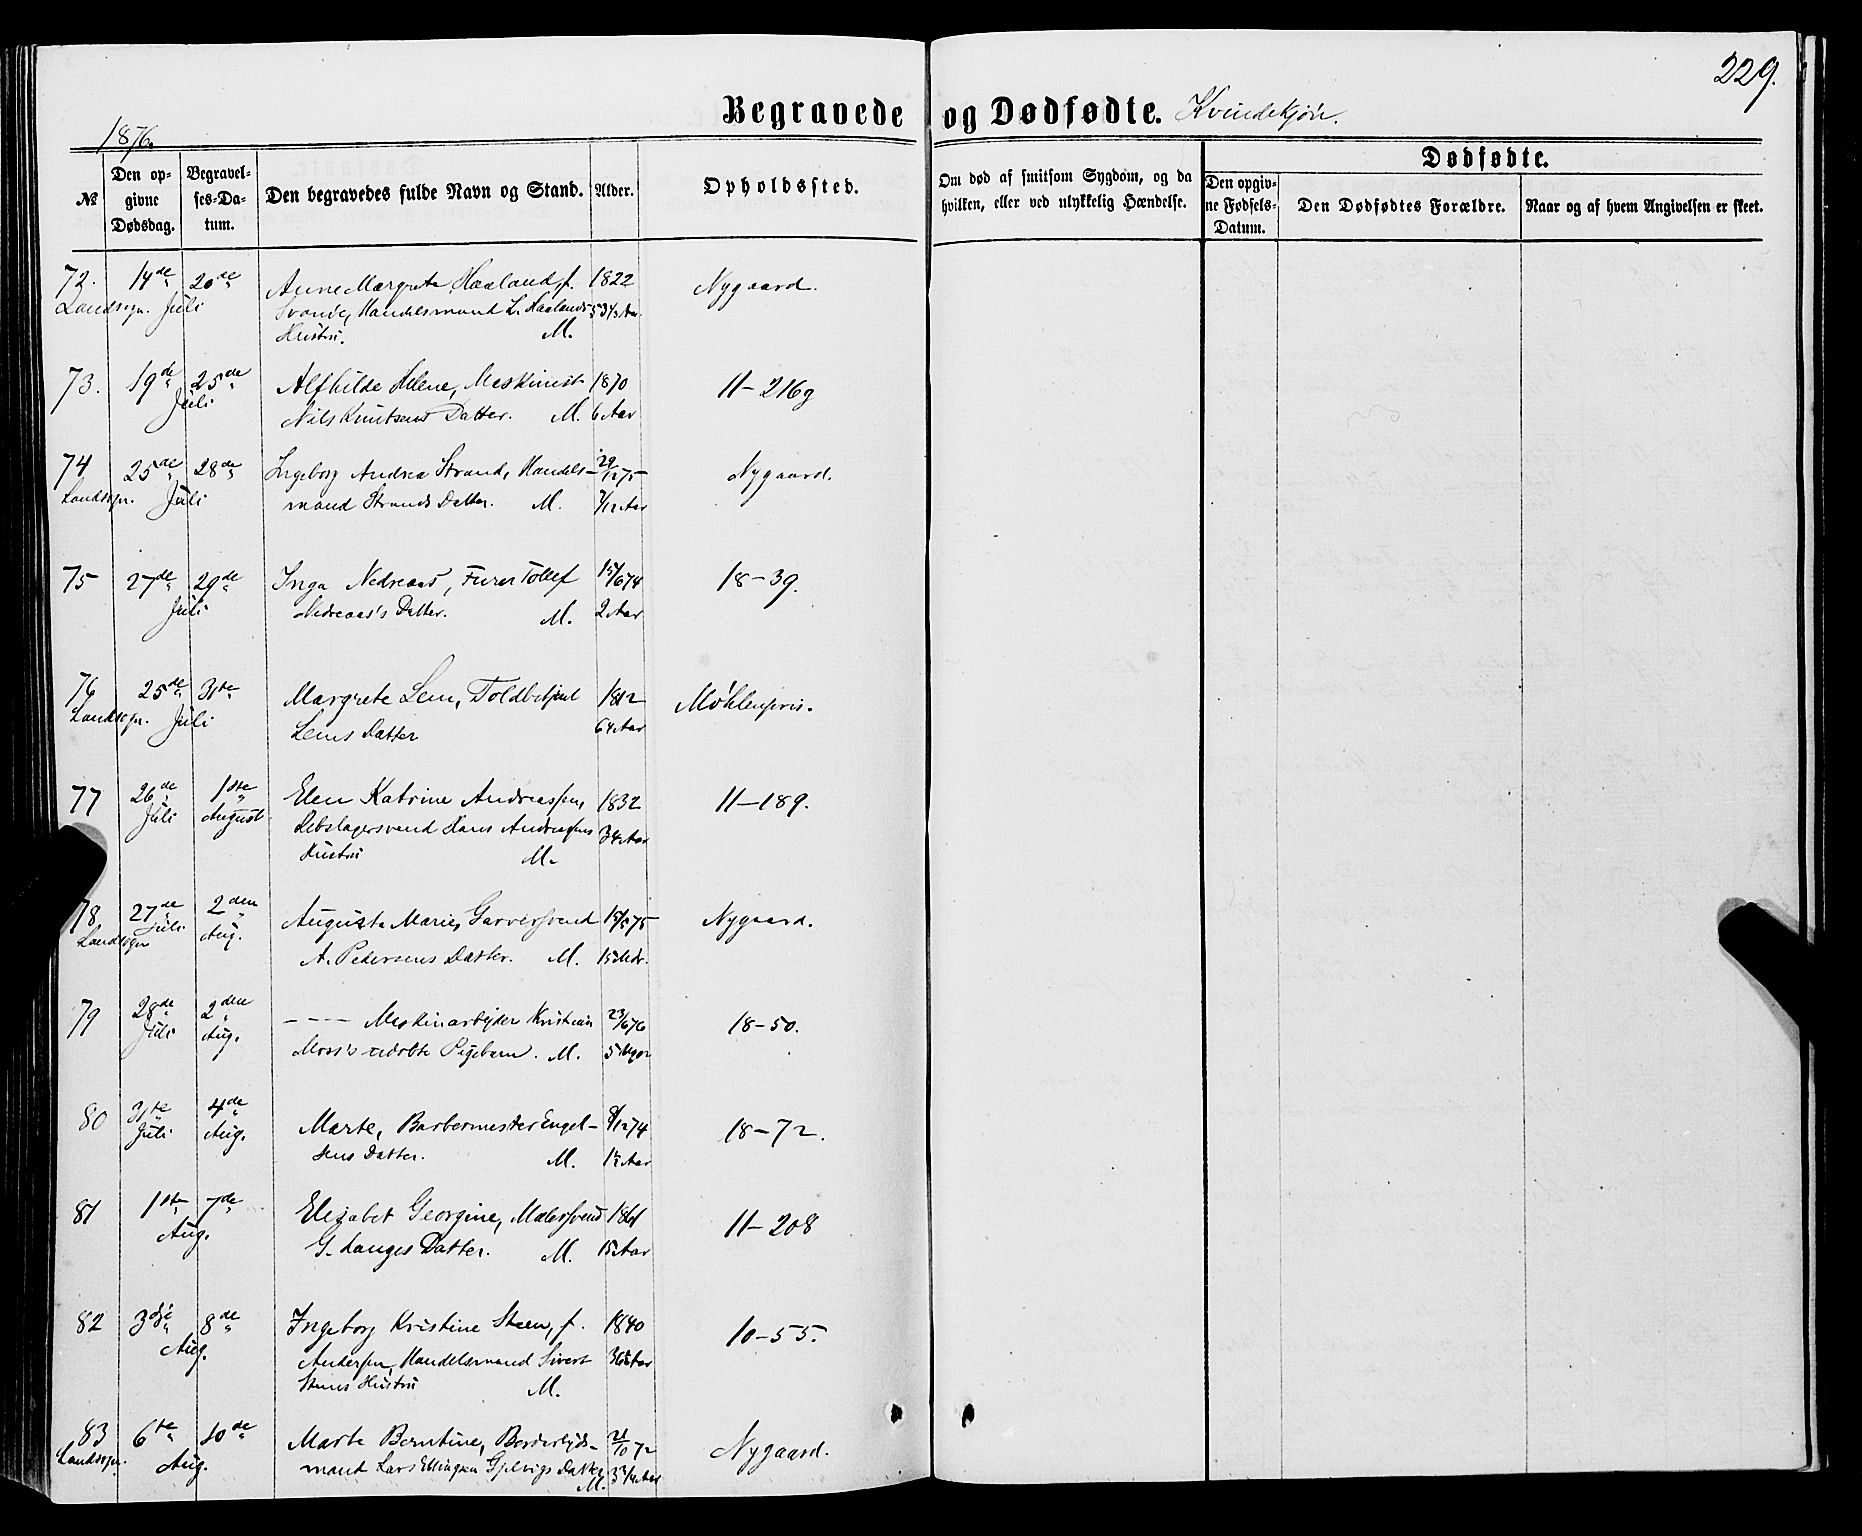 229.
Begravede og Dødfødte. Kvindekjøn.
1876.
№
Den opgivne Dødsdag.
Begravelses-Datum.
Den begravedes fulde Navn og Stand.
Alder.
Opholdssted.
Om død af smitsom Sygdom, og da hvilken, eller ved ulykkelig Hændelse.
Dødfødte.
Den opgivne Fødsels-Datum.
Den Dødfødtes Forældre.
Naar og af hvem Angivelsen er skeet.
72. 14de 20de Anne Margrete Haaland, f. 1822 Nygaard.
Landsogn. Juli Handelsmand L. Haalands 53 1/2 Aar.
Hustru. M.
73. 19de 25de Alfhilde Helene, Maskinist 1870 11-216g
Juli Nils Knutsens Datter. M. 6 Aar
74 25de 28de Ingeborg Andrea Strand, Handels- 29/12 75 Nygaard.
Landsogn. Juli mand Strands Datter. M. 7/12 Aar
75 27de 29de Inga Nedreaas, Furer Tollef 15/6 74 18-39.
Juli Nedreaas's Datter. M. 2 Aar
76 25de 31te Margrete Lem, Toldbetjent 1812 Møhlenpris.
Landsogn. Juli Lems Datter 64 Aar
77 26de 1ste Elen Katrine Andreassen, 1832 11-189.
Juli August Rebslagersvend Hans Andreassens 34 Aar
Hustru M.
78 27de 2den Augusta Marie, Garversvend 15/5 75 Nygaard.
Landsogn Juli Aug. A. Pedersens Datter. M. 15 Mdr.
79 28de 2den ---- Maskinarbeider Kristian 23/6 76 18-50.
Juli Aug. Moss's udøbte Pigebarn. M. 5 Uger
80 31te 4de Marte, Barbermester Engel- 8/12 74 18-72.
Juli Aug. sens Datter. M. 1½ Aar
81 1ste 7de Elisabet Georgine, Malersvend 1861 11-208
Aug. G. Langes Datter. M. 15 Aar
82 3die 8de Ingeborg Kristine Steen, f. 1840 10-55.
Aug. Andersen, Handelsmand Sivert 36 Aar
Steens Hustru M.
83 6te 10de Marte Berntine, 21/10 72 Nygaard.
Landsogn. Aug. mand Lars Ellingsen Gjelvigs Datter 3 3/4 Aar
M.